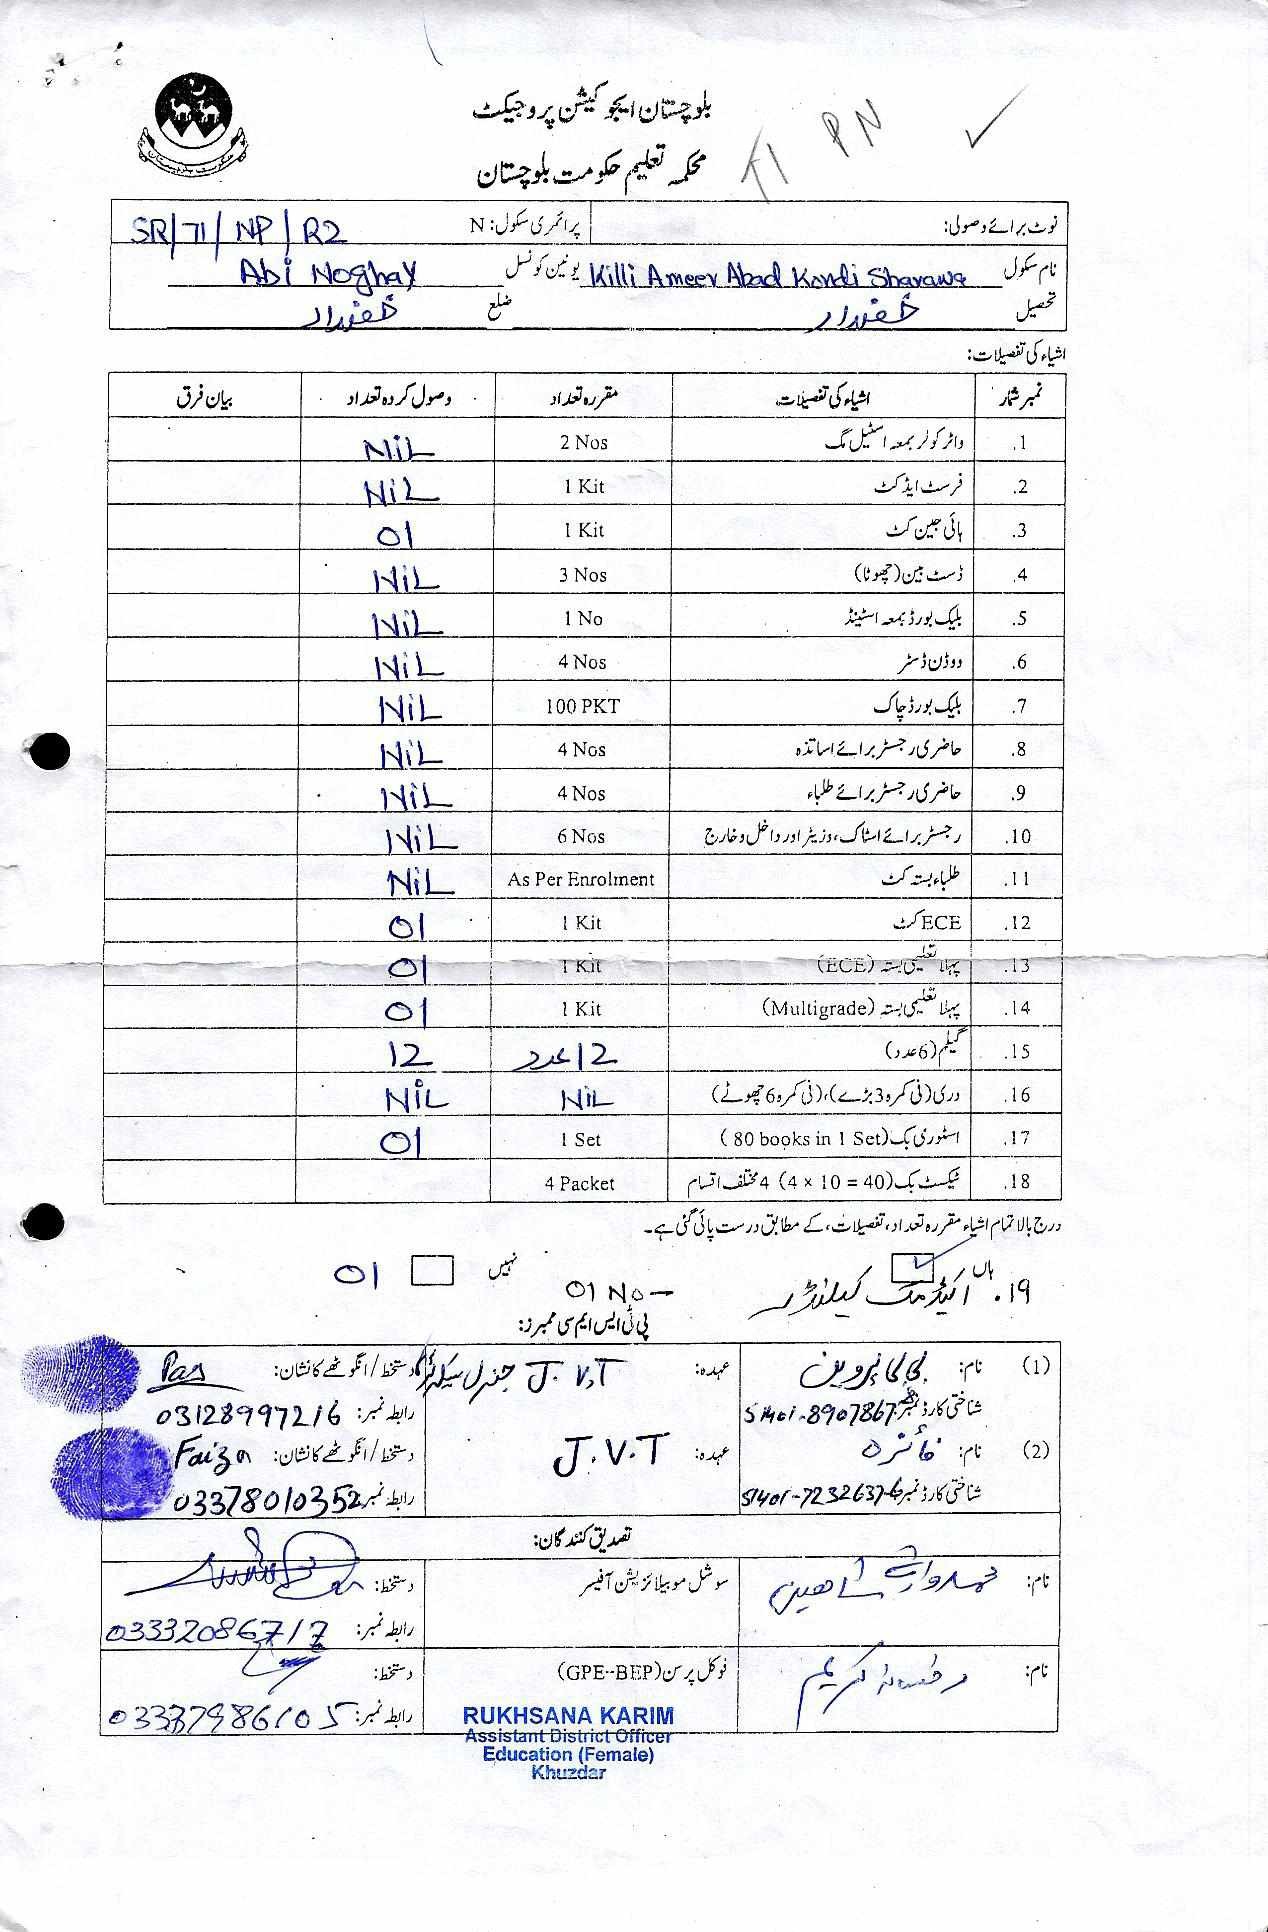 بلوچستان ایجوکیشن پروجیکٹ
PN
محکمہ تعلیم حکومت بلوچستان
نوٹ برائے وصولی: پرائمری سکول: N SR/71/NP/R2
نام سکول Killi Ameer Abad Kondi Sharawa یونین کونسل Abi Noghay
تحصیل خضدار ضلع خضدار
اشیاء کی تفصیلات:
نمبر شمار اشیاء کی تفصیلات مقررہ تعداد وصول کردہ تعداد بیان فرق
1. واٹر کولر بمعہ اسٹیل مگ 2 Nos NiL
2. فرسٹ ایڈ کٹ 1 Kit NiL
3. ہائی جین کٹ 1 Kit 01
4. ڈسٹ بین (چھوٹا) 3 Nos NiL
5. بلیک بورڈ بمعہ اسٹینڈ 1 No NiL
6. ووڈن ڈسٹر 4 Nos NiL
7. بلیک بورڈ چاک 100 PKT NiL
8. حاضری رجسٹر برائے اساتذہ 4 Nos NiL
9. حاضری رجسٹر برائے طلباء 4 Nos NiL
10. رجسٹر برائے اسٹاک، وزیٹر اور داخل و خارج 6 Nos NiL
11. طلباء بستہ کٹ As Per Enrolment NiL
12. ECE کٹ 1 Kit 01
13. پہلا تعلیمی بستہ (ECE) 1 Kit 01
14. پہلا تعلیمی بستہ (Multigrade) 1 Kit 01
15. گیلم (6 عدد) 12 عدد 12
16. دری (فی کمرہ 3 بڑے)، (فی کمرہ 6 چھوٹے) NiL NiL
17. اسٹوری بک (80 books in 1 Set) 1 Set 01
18. ٹیکسٹ بک (4 × 10 = 40) 4 مختلف اقسام 4 Packet
درج بالا تمام اشیاء مقررہ تعداد، تفصیلات، کے مطابق درست پائی گئی ہے۔
ہاں نہیں
۱۹. اکیڈمک کیلنڈر 01 No 01
پی ٹی ایس ایم سی ممبرز:
(1) نام: بی بی پروین عہدہ: J.V.T جنرل سیکرٹری دستخط/انگوٹھے کا نشان:
شناختی کارڈ نمبر 51401-8907867-8 رابطہ نمبر: 03128997216
(2) نام: فائزہ عہدہ: J.V.T دستخط/انگوٹھے کا نشان: Faiza
شناختی کارڈ نمبر 51401-7232637-6 رابطہ نمبر 03378010352
تصدیق کنندگان:
نام: شاھین سوشل موبیلائزیشن آفیسر دستخط:
رابطہ نمبر: 03332086717
نام: رخسانہ کریم فوکل پرسن (GPE--BEP) دستخط:
رابطہ نمبر: 03337986105
RUKHSANA KARIM
Assistant District Officer
Education (Female)
Khuzdar